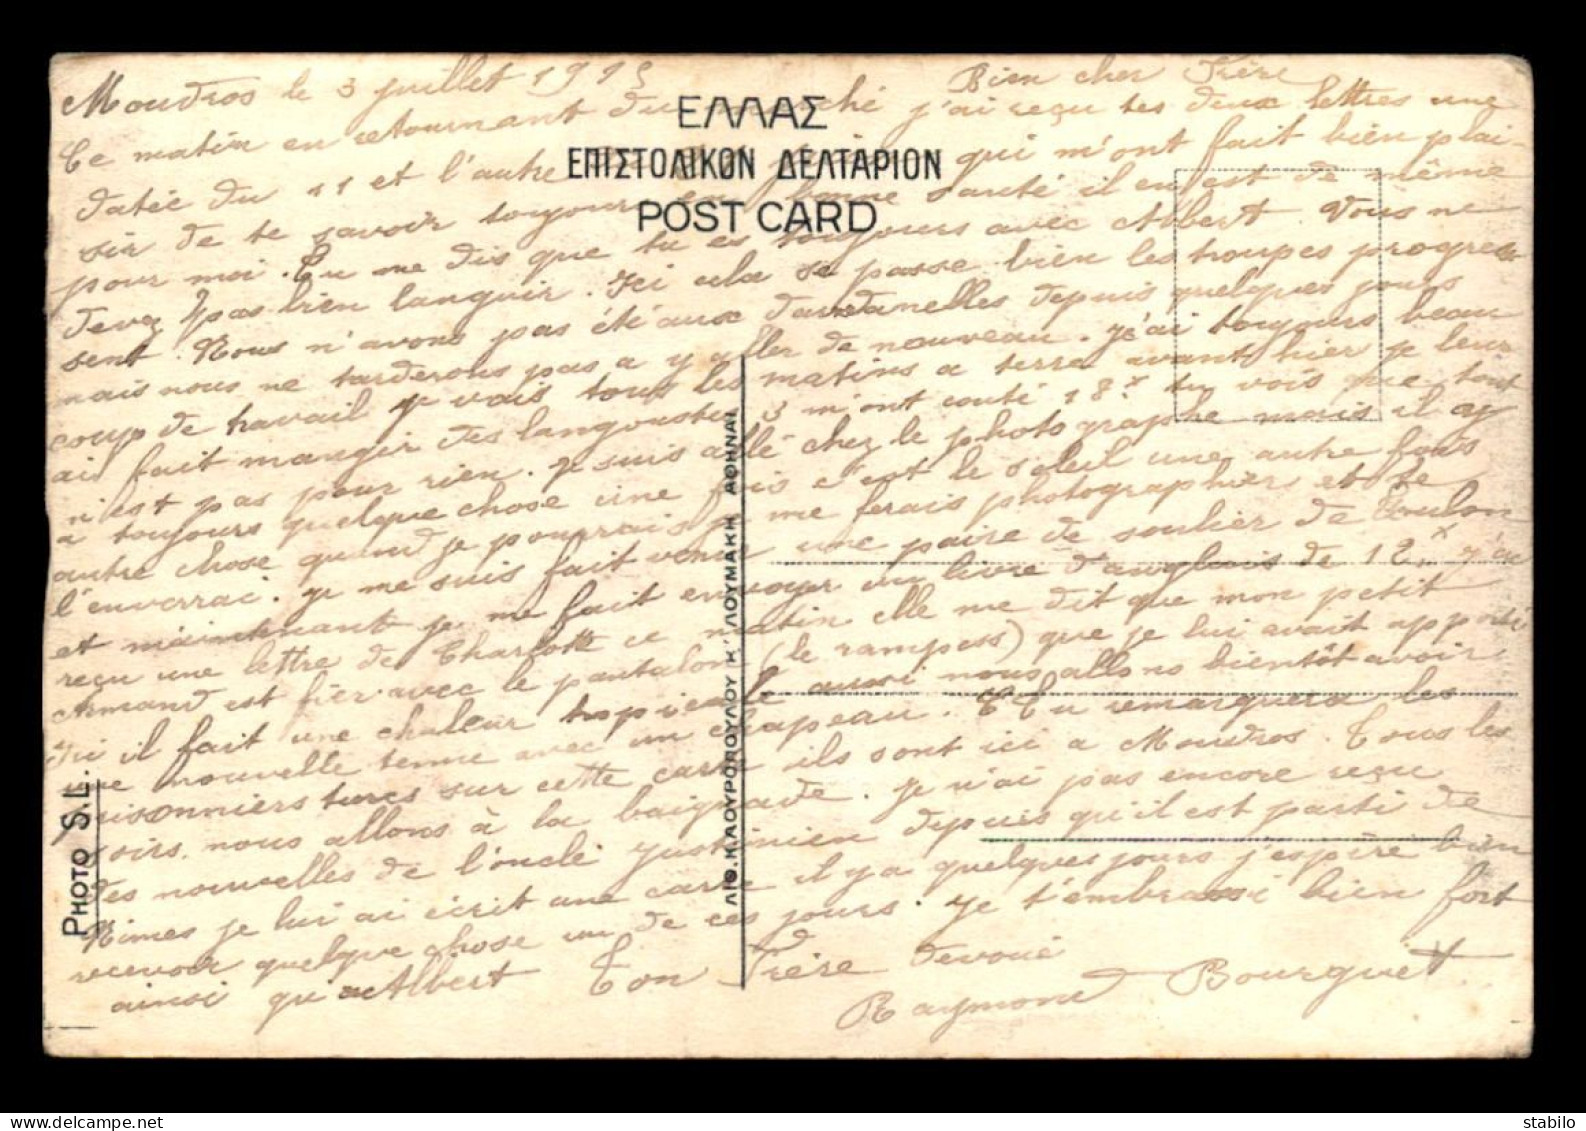 Moudros le 3 juillet 1915 Bien cher Frère
Ce matin en retournant du marché j'ai reçu tes deux lettres une
datée du 11 et l'autre qui m'ont fait bien plai-
sir de te savoir toujours en bonne santé il en est de même
pour moi. Tu me dis que tu es toujours avec Albert. Vous ne
devez pas bien languir. Ici cela se passe bien les troupes progres
sent. Nous n'avons pas été aux dardanelles depuis quelques jours
mais nous ne tarderons pas a y aller de nouveau. j'ai toujours beau
coup de travail je vais tous les matins a terre avant hier je leur
ai fait manger des langoustes 3 m'ont couté 18 tu vois que tout
n'est pas pour rien. Je suis allé chez le photographe mais il a y
a toujours quelque chose une fois c'est le soleil une autre fois
autre chose quand je pourrais je me ferais photographier et te
l'enverrai. je me suis fait venir une paire de soulier de Toulon
et maintenant je me fait envoyer un livre d'anglais de 12 j'ai
reçu une lettre de Charlotte ce matin elle me dit que mon petit
Armand est fier avec le pantalon (le rampess) que je lui avait apporté
Ici il fait une chaleur tropicale aussi nous allons bientôt avoir
une nouvelle tenue avec un chapeau. Tu remarquera les
prisonniers turcs sur cette carte ils sont ici a Moudros. Tous les
soirs nous allons à la baignade. Je n'ai pas encore reçu
des nouvelles de l'oncle Justinien depuis qu'il est parti de
Nimes je lui ai écrit une carte il y a quelques jours j'espère bien
recevoir quelque chose un de ces jours. Je t'embrasse bien fort
ainsi qu'a Albert Ton Frère devoué
Raymond Bourguet
ΕΛΛΑΣ
ΕΠΙΣΤΟΛΙΚΟΝ ΔΕΛΤΑΡΙΟΝ
POST CARD
ΛΙΘ. Κ. ΛΟΥΡΟΠΟΥΛΟΥ Κ' ΛΟΥΜΑΚΗ ΑΘΗΝΑΙ
PHOTO S.L.
www.stabilo4ever.com